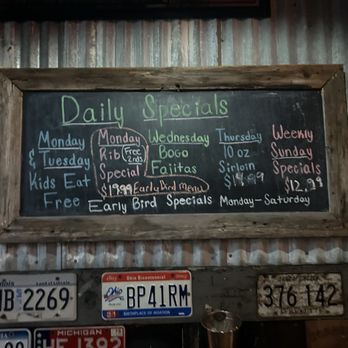 Daily Specials
Monday
& Tuesday
Kids Eat
Free
Monday
Rib Free 2nds
Special
$19.99 Early Bird Menu
Wednesday
BOGO
Fajitas
Thursday
10 oz
Sirloin
Weekly
Sunday
Specials
$12.99
Early Bird Specials Monday-Saturday
2269
Ohio Bicentennial
BP41RM
BIRTHPLACE OF AVIATION
376 142
MICHIGAN
1392